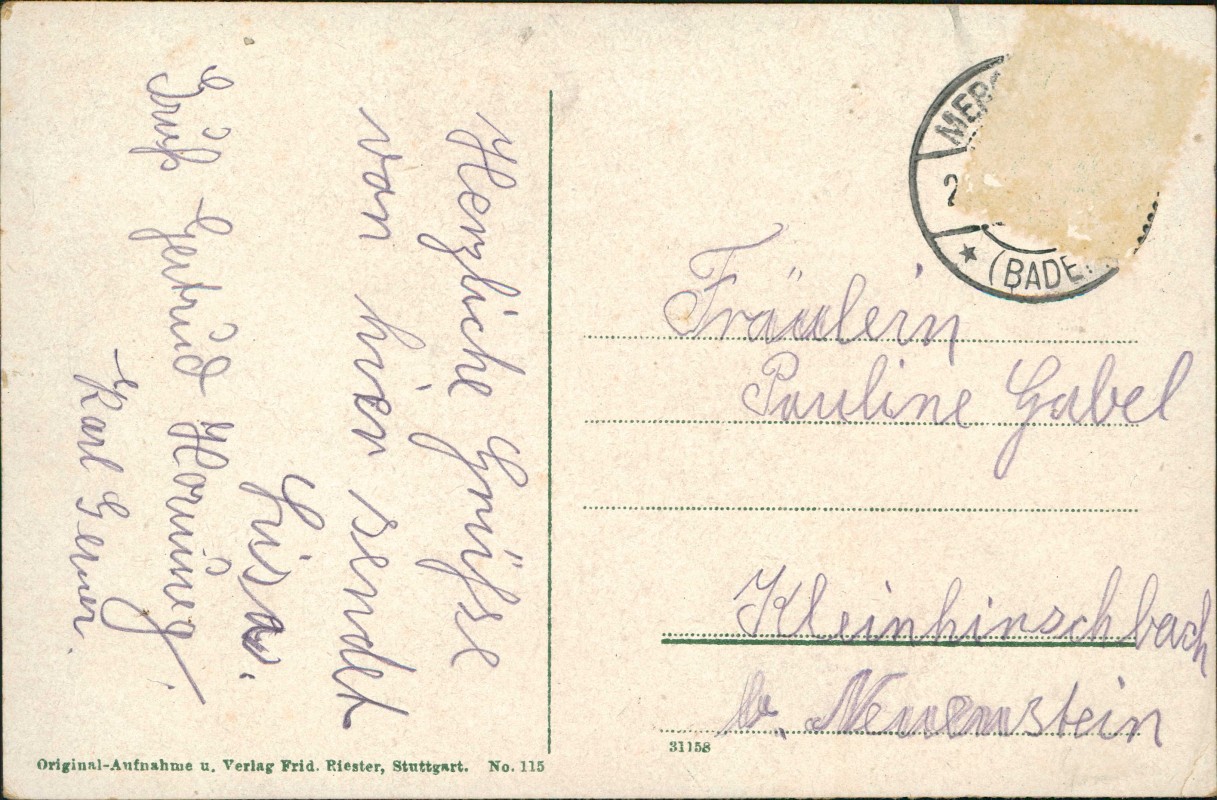 Herzliche Grüsse
von hier sendet
Lisa.
Gruß Gertrud Hornung.
Karl Gerner.
Fräulein
Pauline Gabel
Kleinhirschbach
b. Neuenstein
2
(BADEN
31158
Original-Aufnahme u. Verlag Frid. Riester, Stuttgart. No. 115